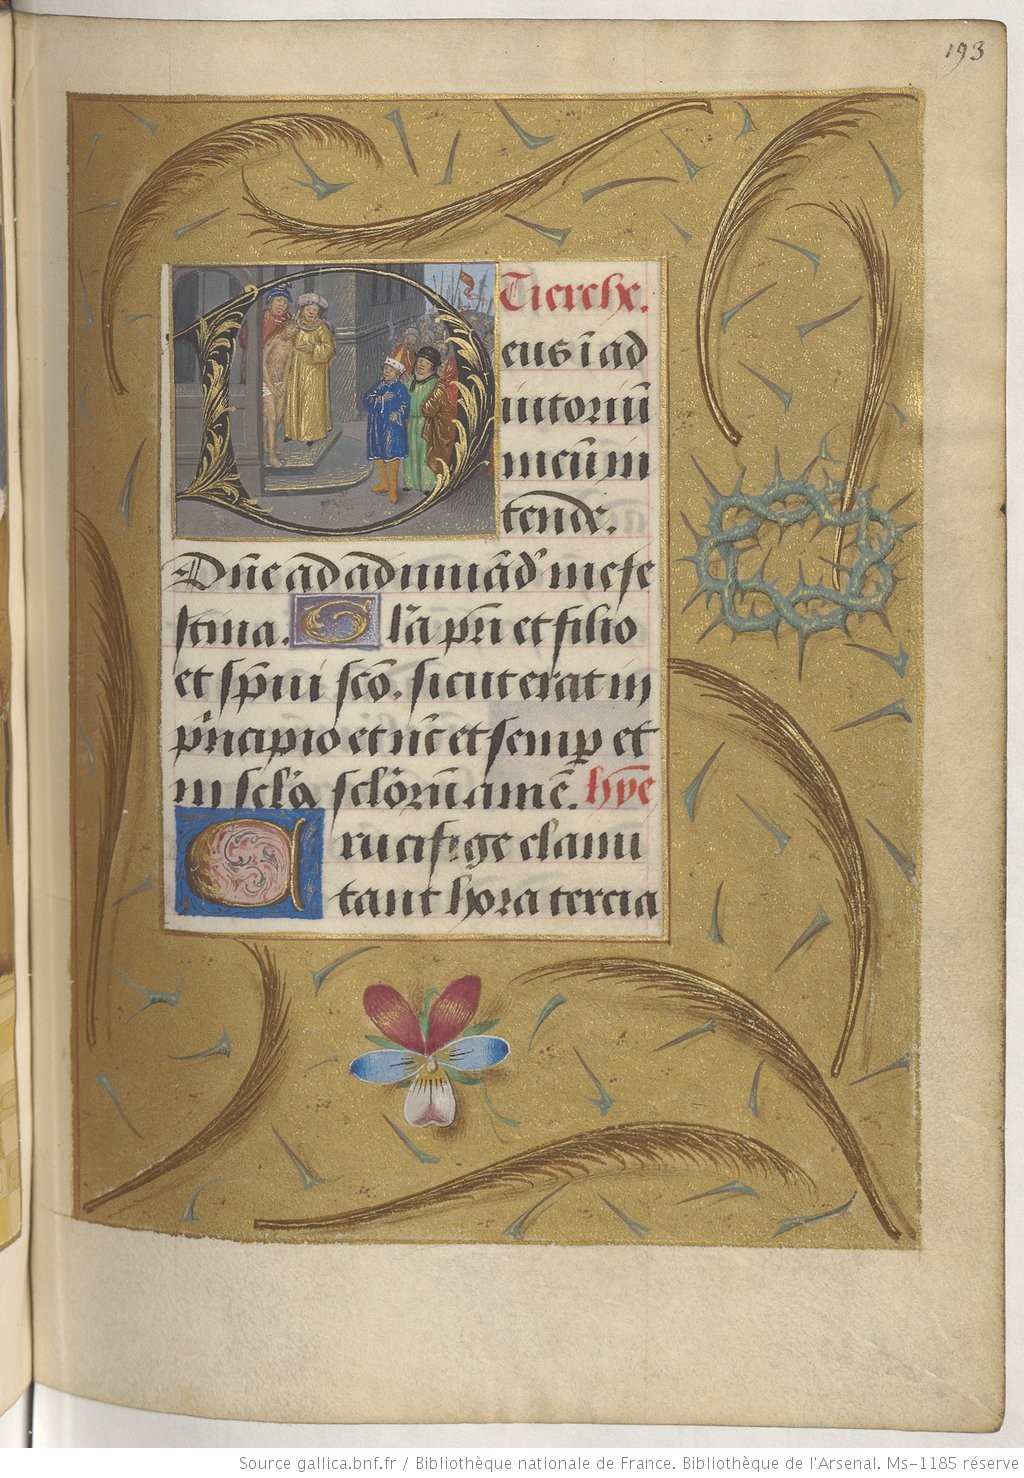 193
Tierche.
Deus ī ad
iutoriū
meū in
tende.
Dn̄e ad adiuuād' me fe
stina. Gl̄a pr̄i et filio
et sp̄iui sc̄o. sicut erat in
pͥncipio et nc̄ et semp̱ et
in scl̄a scl̄orū amē. hȳe
Crucifige clami
tant hora tercia
Source gallica.bnf.fr / Bibliothèque nationale de France. Bibliothèque de l'Arsenal. Ms-1185 réserve